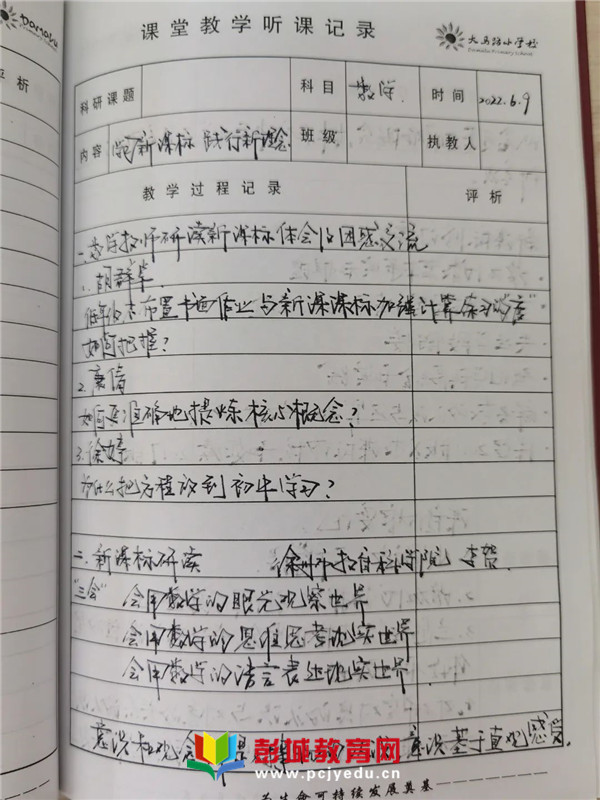 课堂教学听课记录
大马路小学校
科研课题
科目
数学
时间
2022.6.9
内容
学习新课标 践行新理念
班级
执教人
教学过程记录
评析
评析
一、数学教师研读新课标体会及困惑交流
1.胡群华
低年级去布置书面作业与新课课标加强计算练习的
如何把握?
2.康倩
如何更准确地提炼核心概念?
3.徐婷
为什么把方程放到初中学习?
二、新课标研读
徐州市教育科学院 李贺
"三会"
会用数学的眼光观察世界
会用数学的思维思考现实世界
会用数学的语言表达现实世界
意识和观念 意识基于直观感觉.
彭城教育网
www.pcjyedu.cn
为生命可持续发展奠基